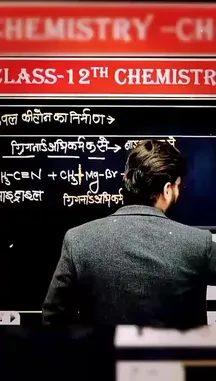 CHEMISTRY-CH
CLASS-12TH CHEMISTR
कीटोन का निर्माण →
ग्रिगनार्ड अभिकर्मक से →
-C≡N + CH₃ Mg-Br +
ग्रिगनार्ड अभिकर्म